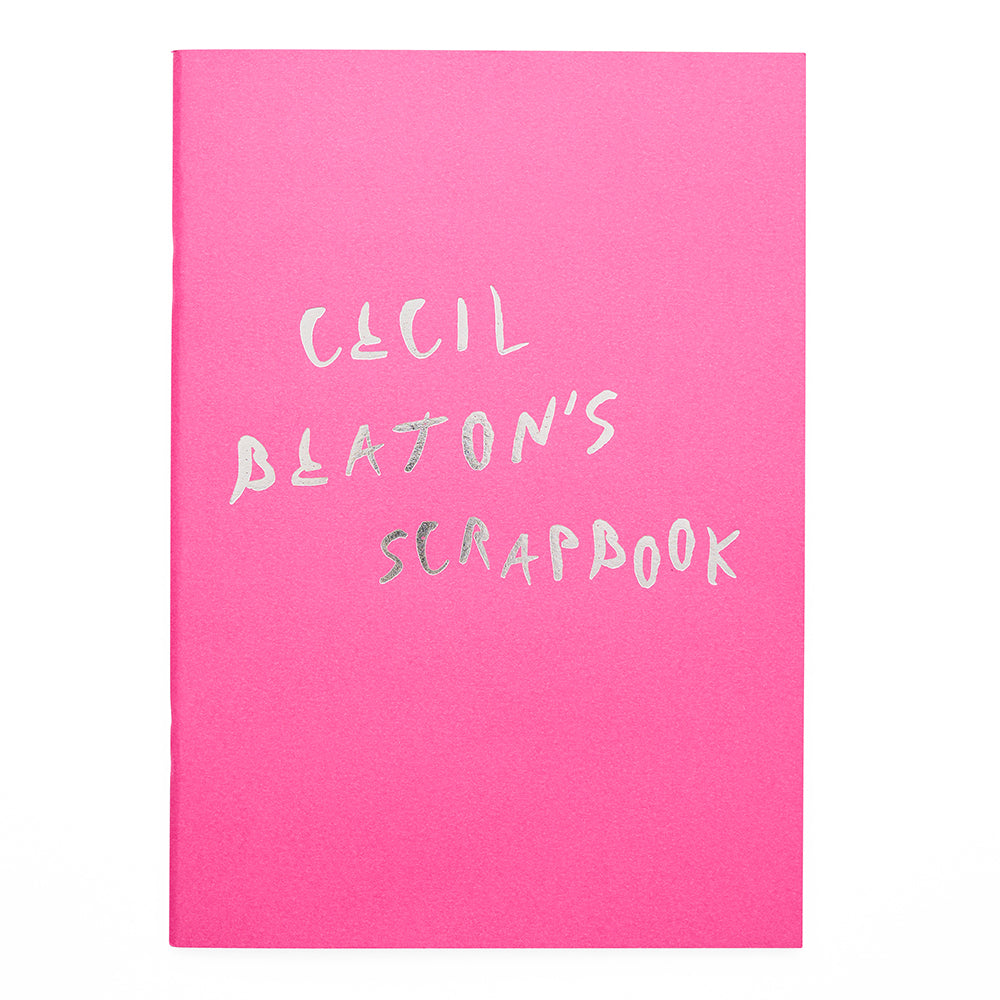 CECIL
BEATON'S
SCRAPBOOK